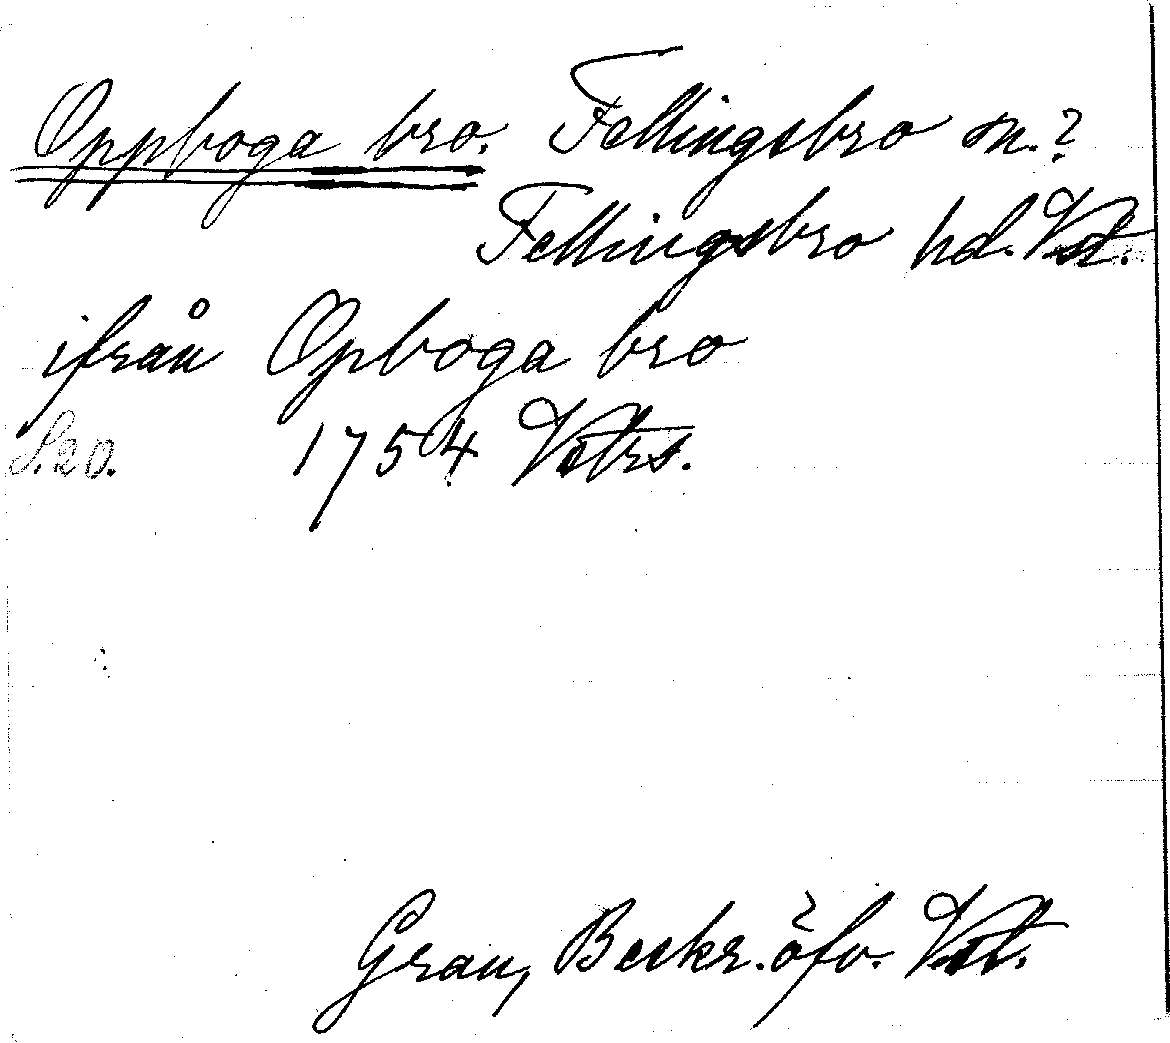 Oppboga bro. Fellingsbro sn.?
Fellingsbro hd. Vstm.
ifrån Opboga bro
S. 20. 1754 Vstrs.
Grau, Beskr. öfv. Vstm.